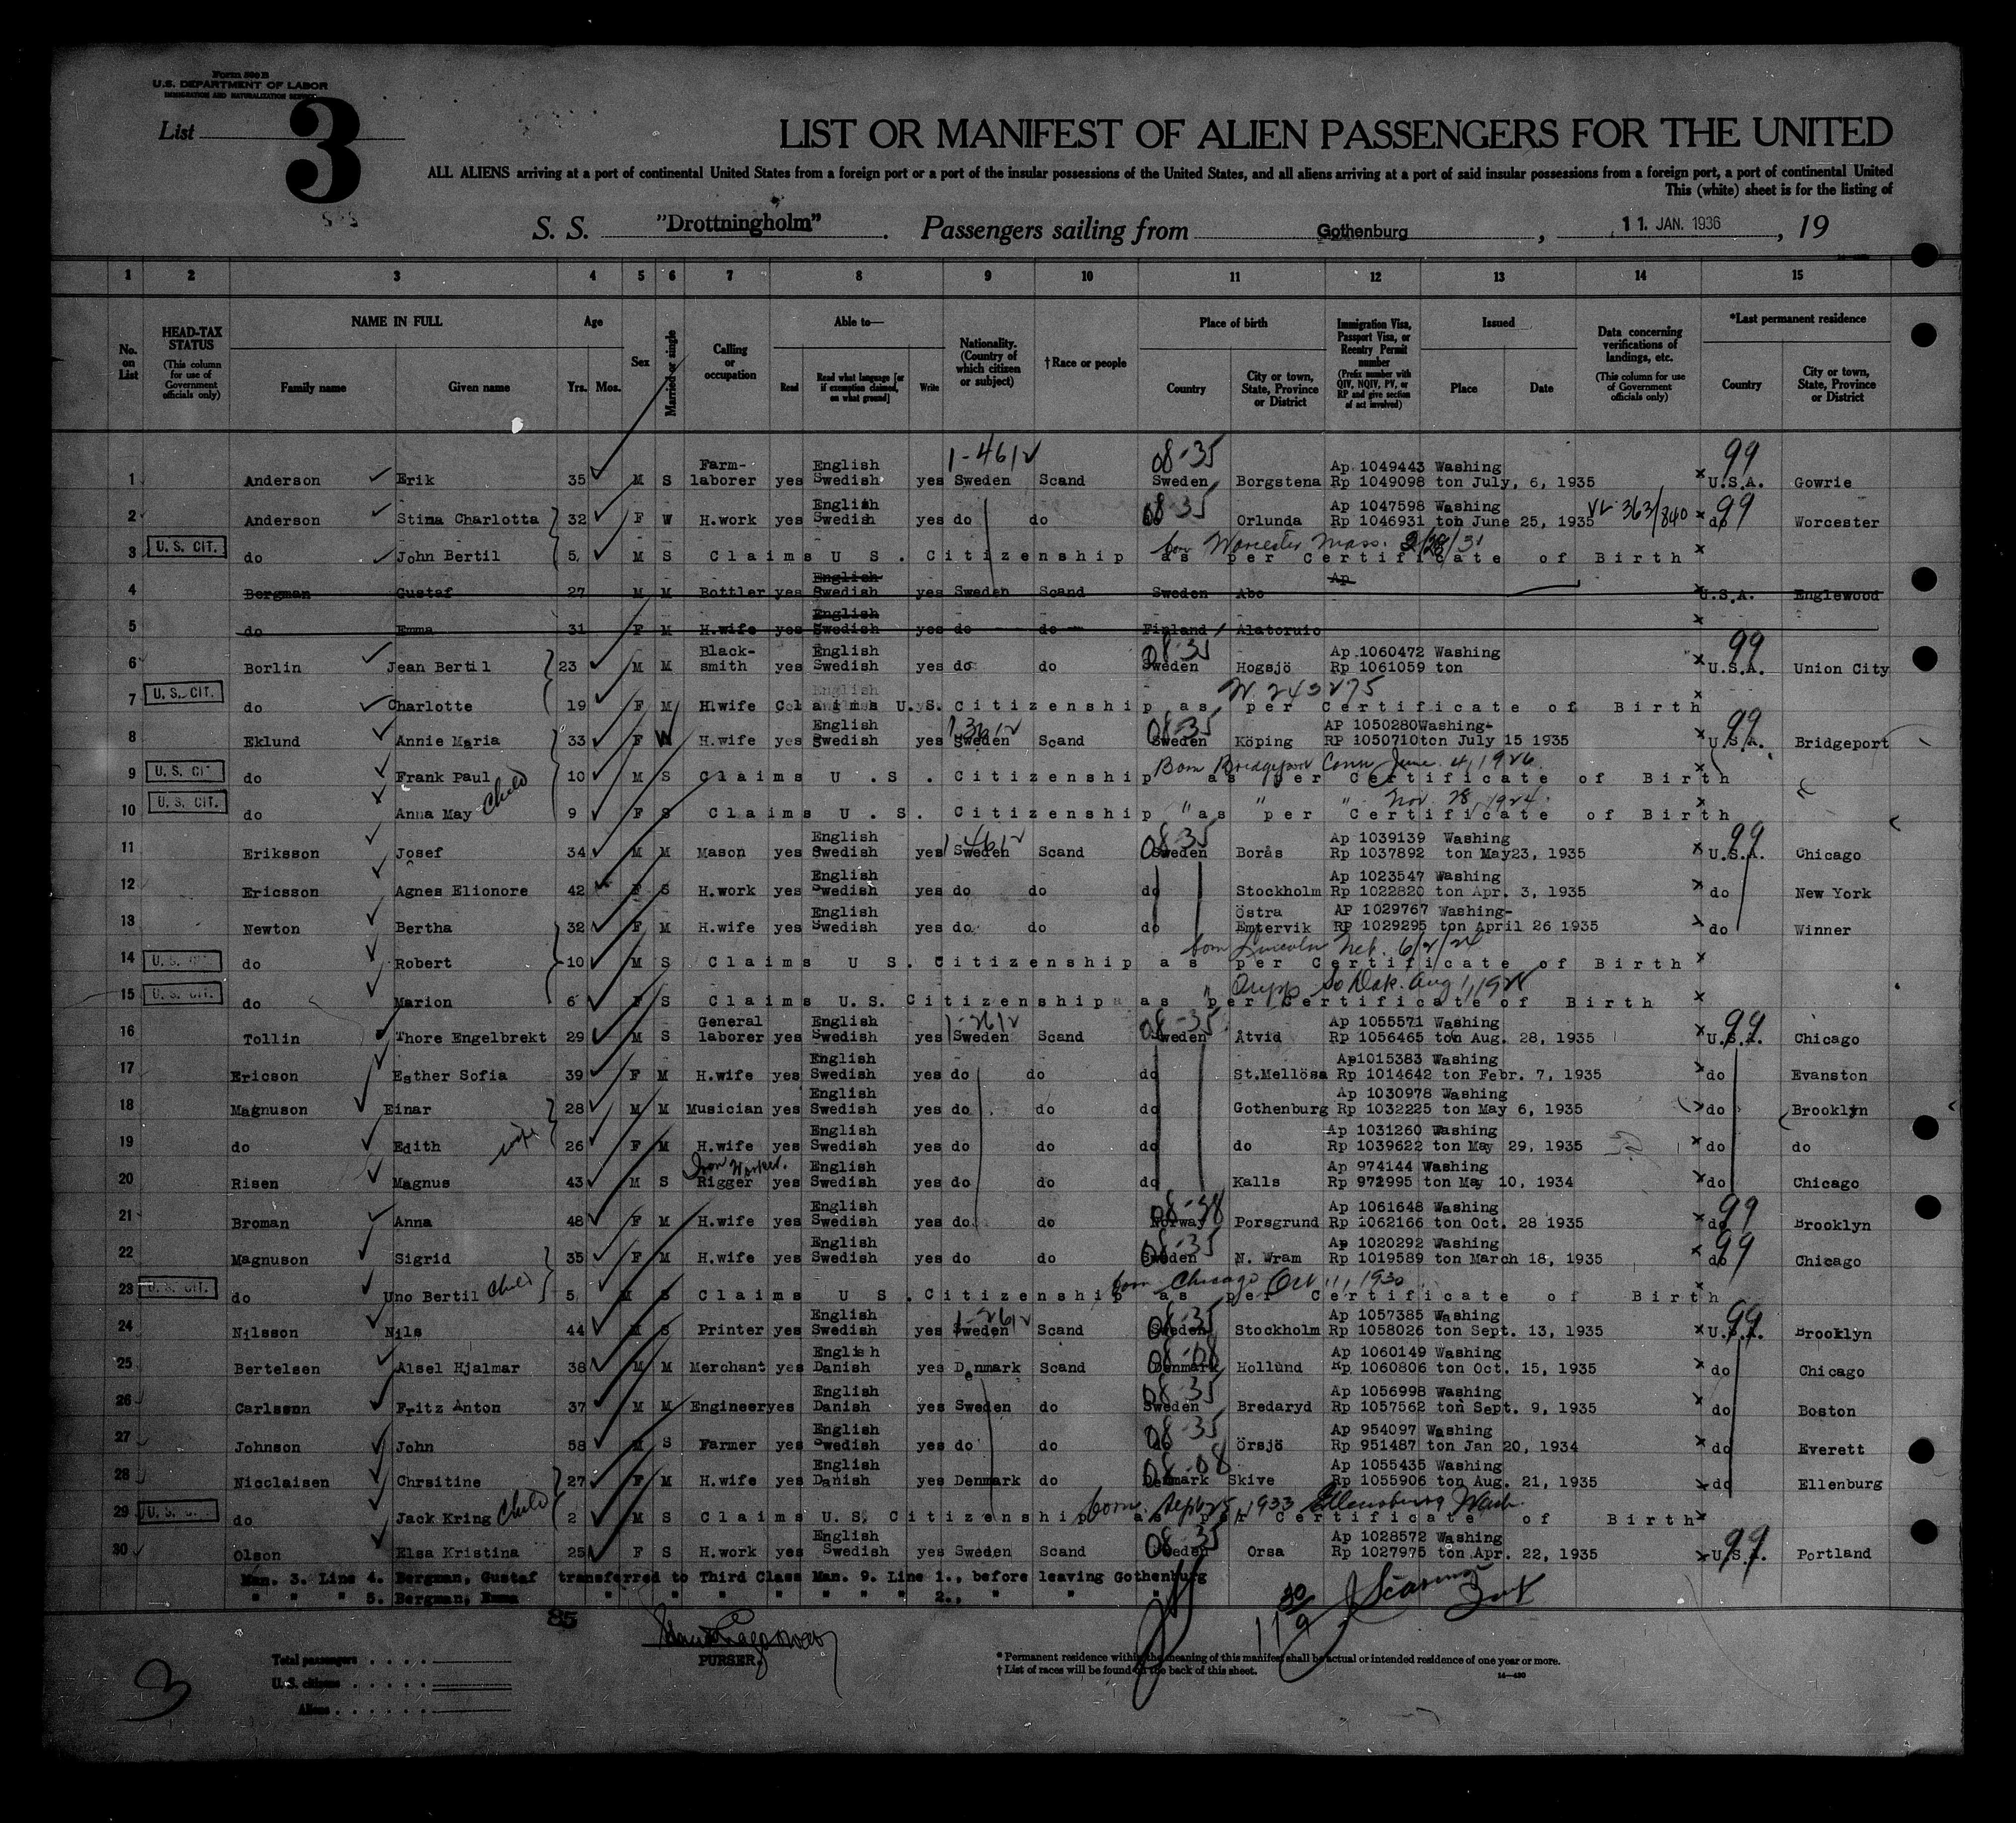 Form 500 B
U.S. DEPARTMENT OF LABOR
IMMIGRATION AND NATURALIZATION SERVICE
List 3
LIST OR MANIFEST OF ALIEN PASSENGERS FOR THE UNITED
ALL ALIENS arriving at a port of continental United States from a foreign port or a port of the insular possessions of the United States, and all aliens arriving at a port of said insular possessions from a foreign port, a port of continental United
This (white) sheet is for the listing of
S. S. "Drottningholm". Passengers sailing from Gothenburg, 11. JAN. 1936, 19
1 2 3 4 5 6 7 8 9 10 11 12 13 14 15
No. on List
HEAD-TAX STATUS (This column for use of Government officials only)
NAME IN FULL
Family name Given name
Age
Yrs. Mos.
Sex
Married or single
Calling or occupation
Able to—
Read Read what language [or if exemption claimed, on what ground] Write
Nationality. (Country of which citizen or subject)
†Race or people
Place of birth
Country City or town, State, Province or District
Immigration Visa, Passport Visa, or Reentry Permit number (Prefix number with QIV, NQIV, PV, or RP and give section of act involved)
Issued
Place Date
Data concerning verifications of landings, etc. (This column for use of Government officials only)
*Last permanent residence
Country City or town, State, Province or District
1-461 08-35 99
Farm- English Ap 1049443 Washing
1 Anderson Erik 35 M S laborer yes Swedish yes Sweden Scand Sweden Borgstena Rp 1049098 ton July, 6, 1935 x U.S.A. Gowrie
08-35 99
English Ap 1047598 Washing
2 Anderson Stina Charlotta 32 F W H.work yes Swedish yes do do do Orlunda Rp 1046931 ton June 25, 1935 VL 363/840 x do Worcester
born Worcester Mass.
3 U. S. CIT. do John Bertil 5 M S Claims U S. Citizenship as per Certificate of Birth x
English Ap
4 Bergman Gustaf 27 M M Bottler yes Swedish yes Sweden Scand Sweden Abo x U.S.A. Englewood
English
5 do Emma 31 F M H.wife yes Swedish yes do do Finland Alatornio x
08-35 99
Black- English Ap 1060472 Washing
6 Borlin Jean Bertil 23 M M smith yes Swedish yes do do Sweden Hogsjö Rp 1061059 ton x U.S.A. Union City
7 U. S. CIT. do Charlotte 19 F M H.wife Claims U.S. Citizenship as per Certificate of Birth x
08-35 99
English AP 1050280 Washing-
8 Eklund Annie Maria 33 F W H.wife yes Swedish yes Sweden Scand Sweden Köping RP 1050710 ton July 15 1935 x U.S.A. Bridgeport
Born Bridgeport Conn June 4, 1926.
9 U. S. CIT do Frank Paul 10 M S Claims U.S. Citizenship as per Certificate of Birth x
" " " Nov. 28, 1924.
10 U. S. CIT. do Anna May Child 9 F S Claims U.S. Citizenship as per Certificate of Birth x
08-35 99
English Ap 1039139 Washing
11 Eriksson Josef 34 M M Mason yes Swedish yes Sweden Scand Sweden Borås Rp 1037892 ton May23, 1935 x U.S.A. Chicago
English Ap 1023547 Washing
12 Ericsson Agnes Elionore 42 F S H.work yes Swedish yes do do do Stockholm Rp 1022820 ton Apr. 3, 1935 x do New York
English Östra AP 1029767 Washing-
13 Newton Bertha 32 F M H.wife yes Swedish yes do do do Emtervik RP 1029295 ton April 26 1935 x do Winner
born Lincoln Neb. 6/2/24
14 do Robert 10 M S Claims U S. Citizenship as per Certificate of Birth x
So Dak. Aug 1,
15 U. S. CIT. do Marion 6 F S Claims U.S. Citizenship as per Certificate of Birth x
08-35 99
General English Ap 1055571 Washing
16 Tollin Thore Engelbrekt 29 M S laborer yes Swedish yes Sweden Scand Sweden Åtvid Rp 1056465 ton Aug. 28, 1935 x U.S.A. Chicago
English Ap1015383 Washing
17 Ericson Esther Sofia 39 F M H.wife yes Swedish yes do do do St.Mellösa Rp 1014642 ton Febr. 7, 1935 x do Evanston
English Ap 1030978 Washing
18 Magnuson Einar 28 M M Musician yes Swedish yes do do do Gothenburg Rp 1032225 ton May 6, 1935 x do Brooklyn
English Ap 1031260 Washing
19 do Edith wife 26 F M H.wife yes Swedish yes do do do do Rp 1039622 ton May 29, 1935 x do do
Iron Worker. English Ap 974144 Washing
20 Risen Magnus 43 M S Rigger yes Swedish yes do do do Kalls Rp 972995 ton May 10, 1934 x do Chicago
08-28 99
English Ap 1061648 Washing
21 Broman Anna 48 F M H.wife yes Swedish yes do do Norway Porsgrund Rp 1062166 ton Oct. 28 1935 x do Brooklyn
08-35 99
English Ap 1020292 Washing
22 Magnuson Sigrid 35 F M H.wife yes Swedish yes do do Sweden N. Wram Rp 1019589 ton March 18, 1935 x do Chicago
born Chicago Oct 11, 1930
23 U. S. CIT. do Uno Bertil Child 5 M S Claims U S. Citizenship as per Certificate of Birth x
08-35 99
English Ap 1057385 Washing
24 Nilsson Nils 44 M S Printer yes Swedish yes Sweden Scand Sweden Stockholm Rp 1058026 ton Sept. 13, 1935 x U.S.A. Brooklyn
08-08
English Ap 1060149 Washing
25 Bertelsen Alsel Hjalmar 38 M M Merchant yes Danish yes Denmark Scand Denmark Hollund Rp 1060806 ton Oct. 15, 1935 x do Chicago
08-35
English Ap 1056998 Washing
26 Carlsson Fritz Anton 37 M M Engineer yes Danish yes Sweden do Sweden Bredaryd Rp 1057562 ton Sept. 9, 1935 x do Boston
08-35
English Ap 954097 Washing
27 Johnson John 58 M S Farmer yes Swedish yes do do do Örsjö Rp 951487 ton Jan 20, 1934 x do Everett
08-08
English Ap 1055435 Washing
28 Nicclaisen Chrsitine 27 F M H.wife yes Danish yes Denmark do Denmark Skive Rp 1055906 ton Aug. 21, 1935 x do Ellenburg
born Sept 25, 1933 Ellensburg Wash.
29 do Jack Kring Child 2 M S Claims U.S. Citizenship as per Certificate of Birth x
08-35 99
English Ap 1028572 Washing
30 Olson Elsa Kristina 25 F S H.work yes Swedish yes Sweden Scand Sweden Orsa Rp 1027975 ton Apr. 22, 1935 x U.S.A. Portland
Man. 3. Line 4. Bergman, Gustaf transferred to Third Class Man. 9. Line 1., before leaving Gothenburg
" " " 5. Bergman, Emma " " " " " " 2., " " "
85
PURSER.
3
Total passengers
U. S. citizens
Aliens
* Permanent residence within the meaning of this manifest shall be actual or intended residence of one year or more.
† List of races will be found on the back of this sheet.